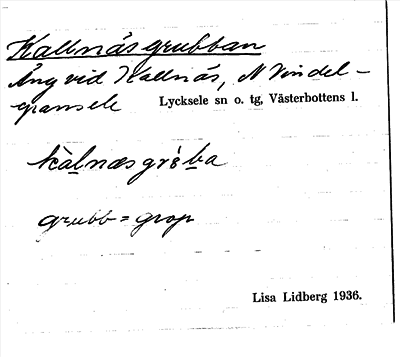 Kallnäsgrubban
Äng vid Kallnäs, N Vindel-
gransele Lycksele sn o. tg, Västerbottens l.
kàlnæsgrʉ̀ba
grubb = grop
Lisa Lidberg 1936.